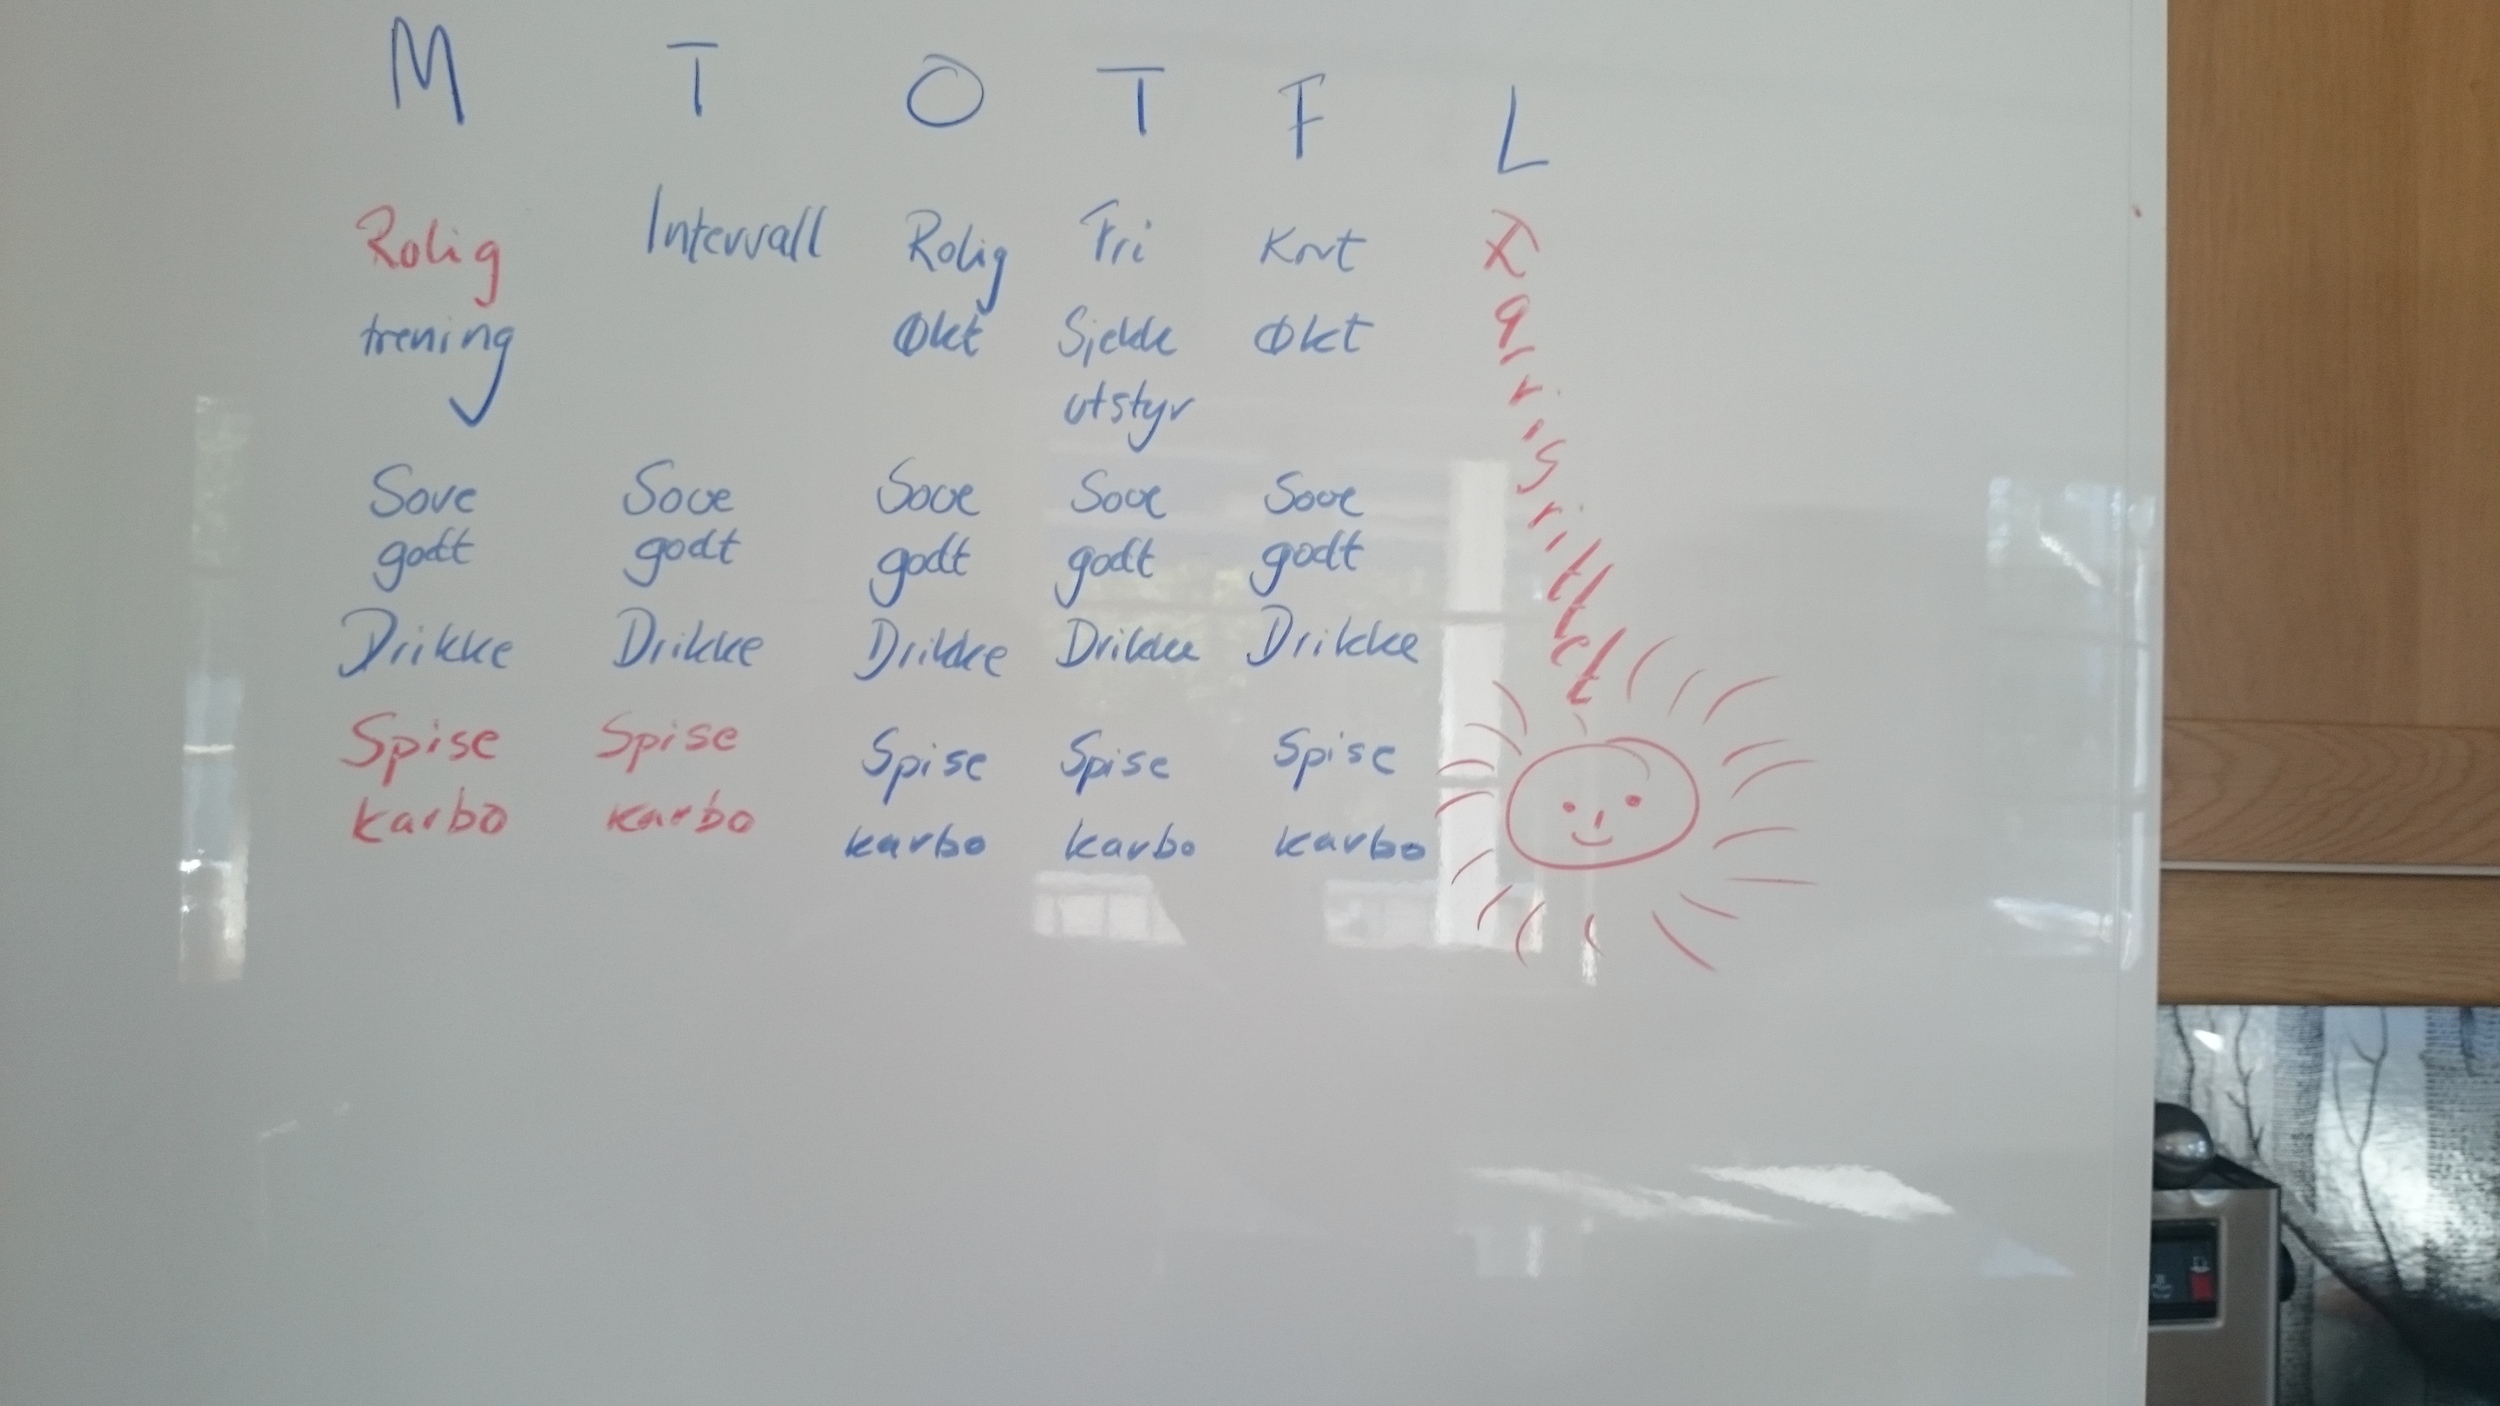 M T O T F L
Rolig Intervall Rolig Fri Kort
trening Økt Sjekk Økt
utstyr
Sove Sove Sove Sove Sove
godt godt godt godt godt
Drikke Drikke Drikke Drikke Drikke
Spise Spise Spise Spise Spise
karbo karbo karbo karbo karbo